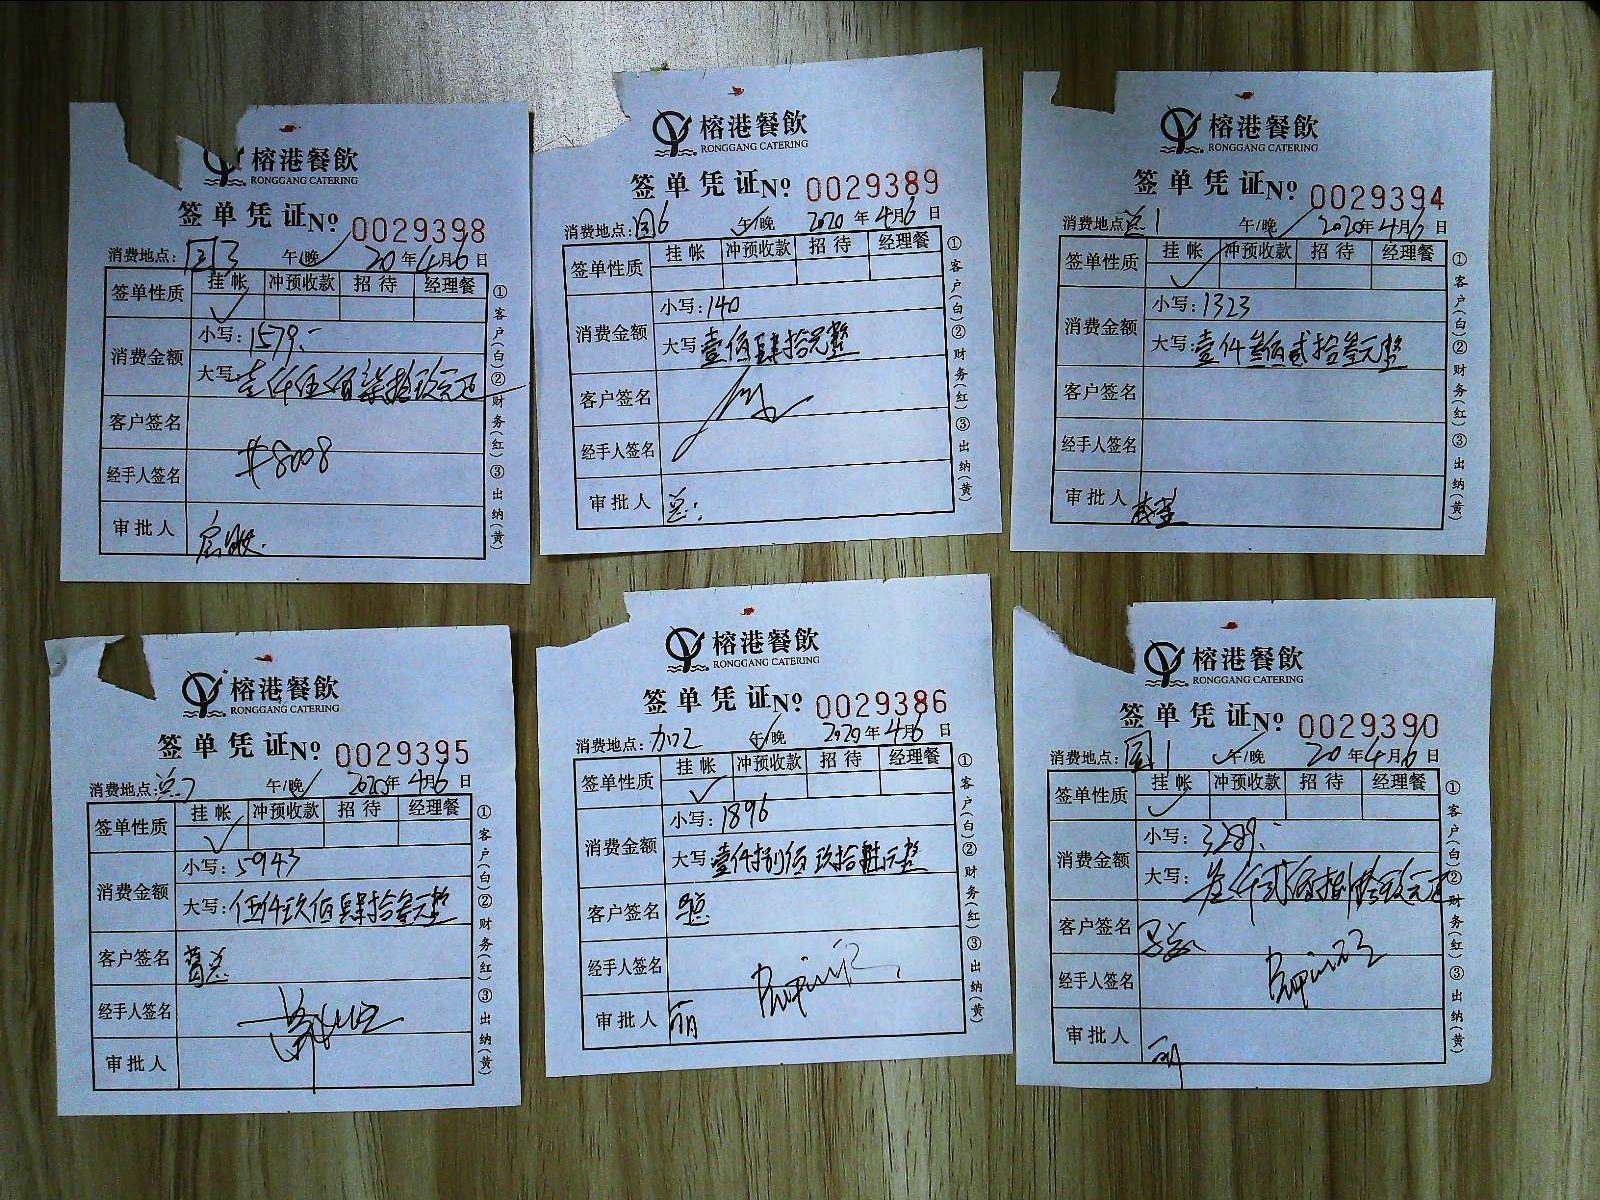 榕港餐飲
RONGGANG CATERING
签单凭证 Nº 0029398
消费地点: 园3 午/晚 20年4月6日
签单性质 挂帐 冲预收款 招待 经理餐
消费金额 小写: 1579.-
大写: 壹仟伍佰柒拾玖元正
客户签名
经手人签名 #8008
审批人
①客户(白)②财务(红)③出纳(黄)
榕港餐飲
RONGGANG CATERING
签单凭证 Nº 0029389
消费地点: 园6 午/晚 2020年4月6日
签单性质 挂帐 冲预收款 招待 经理餐
消费金额 小写: 140
大写 壹佰肆拾元整
客户签名
经手人签名
审批人
①客户(白)②财务(红)③出纳(黄)
榕港餐飲
RONGGANG CATERING
签单凭证 Nº 0029394
消费地点: 总1 午/晚 2020年4月6日
签单性质 挂帐 冲预收款 招待 经理餐
消费金额 小写: 1323
大写: 壹仟叁佰贰拾叁元整
客户签名
经手人签名
审批人
①客户(白)②财务(红)③出纳(黄)
榕港餐飲
RONGGANG CATERING
签单凭证 Nº 0029395
消费地点: 总7 午/晚 2020年4月6日
签单性质 挂帐 冲预收款 招待 经理餐
消费金额 小写: 5943
大写: 伍仟玖佰肆拾叁元整
客户签名 葛总
经手人签名
审批人
①客户(白)②财务(红)③出纳(黄)
榕港餐飲
RONGGANG CATERING
签单凭证 Nº 0029386
消费地点: 午/晚 2020年4月6日
签单性质 挂帐 冲预收款 招待 经理餐
消费金额 小写: 1896
大写 壹仟捌佰玖拾陆元整
客户签名
经手人签名
审批人 丽
①客户(白)②财务(红)③出纳(黄)
榕港餐飲
RONGGANG CATERING
签单凭证 Nº 0029390
消费地点: 园1 午/晚 20年4月6日
签单性质 挂帐 冲预收款 招待 经理餐
消费金额 小写: 3289.-
大写: 叁仟贰佰捌拾玖元正
客户签名
经手人签名
审批人 丽
①客户(白)②财务(红)③出纳(黄)